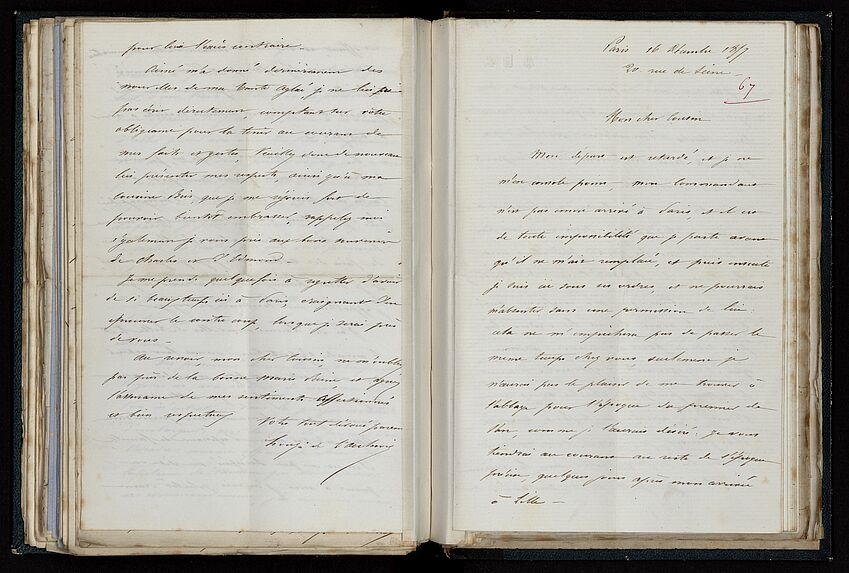 pour lui l'avis contraire.
Aimé m'a donné dernièrement des
nouvelles de ma tante Aglaé, je ne lui ai
pas écrit directement, comptant sur votre
obligeance pour la tenir au courant de
mes faits et gestes. Veuillez donc de nouveau
lui présenter mes respects, ainsi qu'à ma
cousine que je me réjouis fort de
pouvoir bientôt embrasser, rappelez moi
également je vous prie aux bons souvenirs
de Charles et d'Edmond.
Je me prends quelquefois à regretter d'avoir
de si beau temps ici à Paris, craignant d'en
éprouver le contre coup, lorsque je serai près
de vous.
Au revoir, mon cher cousin, ne m'oubliez
pas près de la bonne Marie et agréez
l'assurance de mes sentiments affectionnés
et bien respectueux
Votre tout dévoué parent
Paris 16 Xbre
20 rue de Seine
67
Mon cher Cousin
Mon départ est retardé, et je ne
m'en console point, mon Commandant
n'est pas encore arrivé à Paris, et il est
de toute impossibilité que je parte avant
qu'il ne m'ait remplacé, et puis ensuite
je suis ici sous ses ordres, et ne pourrais
m'absenter sans une permission de lui:
cela ne m'empêchera pas de passer le
même temps chez vous, seulement je
n'aurai pas le plaisir de me trouver à
l'abbaye pour l'époque du premier de
l'an, comme je l'aurais désiré. Je vous
tiendrai au courant au reste de l'époque
précise, quelques jours après mon arrivée
à Lille —